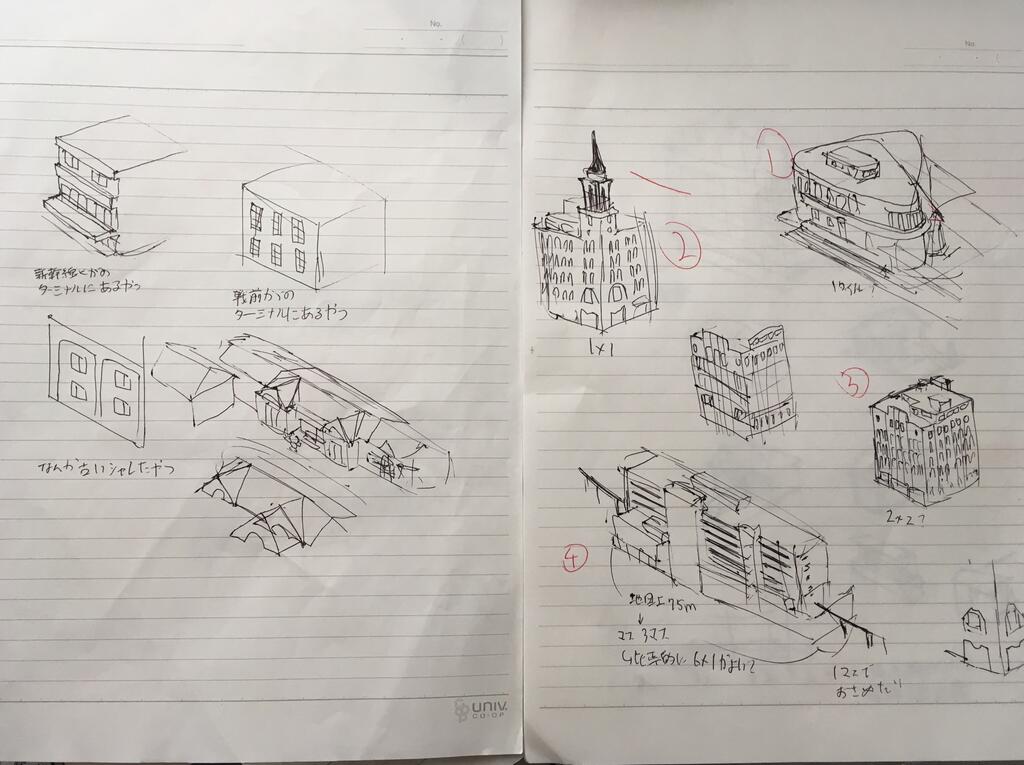 No.
新幹線とかの
ターミナルにあるやつ
戦前からの
ターミナルにあるやつ
なんか古いシャレたやつ
UNIV.
CO-OP
No.
①
1タイル?
②
1×1
③
2×2?
④
地図上75m
↓
マス 3マス
比率的に 6×1が
1マスで
おさめたい